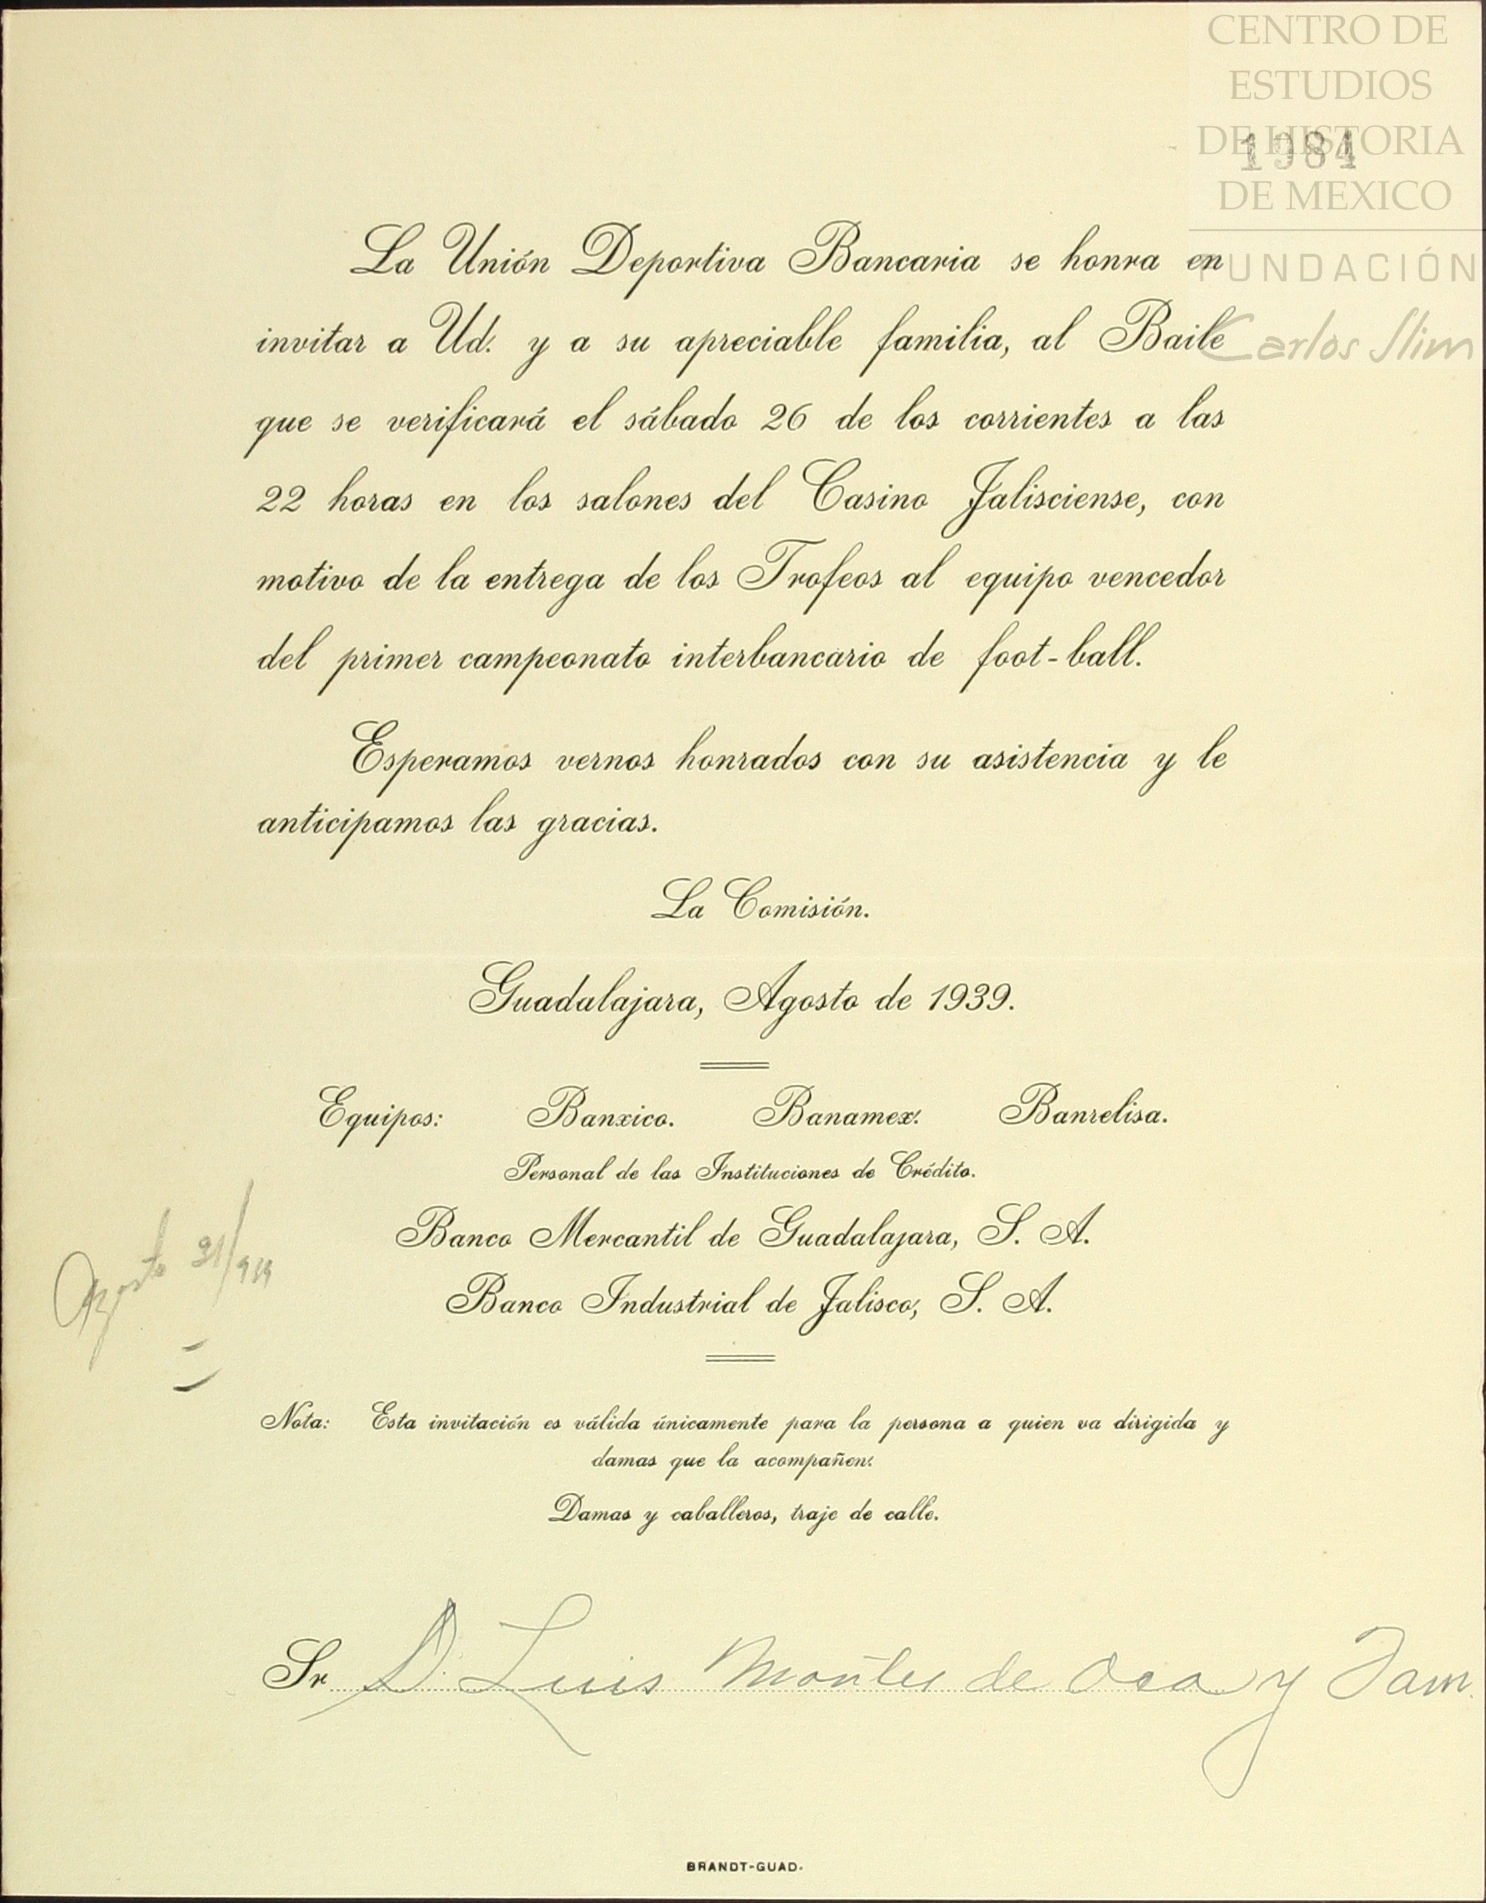 CENTRO DE
ESTUDIOS
DE HISTORIA
1984
DE MEXICO
FUNDACIÓN
Carlos Slim
La Unión Deportiva Bancaria se honra en
invitar a Ud. y a su apreciable familia, al Baile
que se verificará el sábado 26 de los corrientes a las
22 horas en los salones del Casino Jalisciense, con
motivo de la entrega de los Trofeos al equipo vencedor
del primer campeonato interbancario de foot-ball.
Esperamos vernos honrados con su asistencia y le
anticipamos las gracias.
La Comisión.
Guadalajara, Agosto de 1939.
Equipos: Banxico. Banamex. Banrelisa.
Personal de las Instituciones de Crédito.
Banco Mercantil de Guadalajara, S. A.
Banco Industrial de Jalisco, S. A.
Agosto 31/939
Nota: Esta invitación es válida únicamente para la persona a quien va dirigida y
damas que la acompañen.
Damas y caballeros, traje de calle.
Sr D. Luis Montes de Oca y Fam.
BRANDT-GUAD.